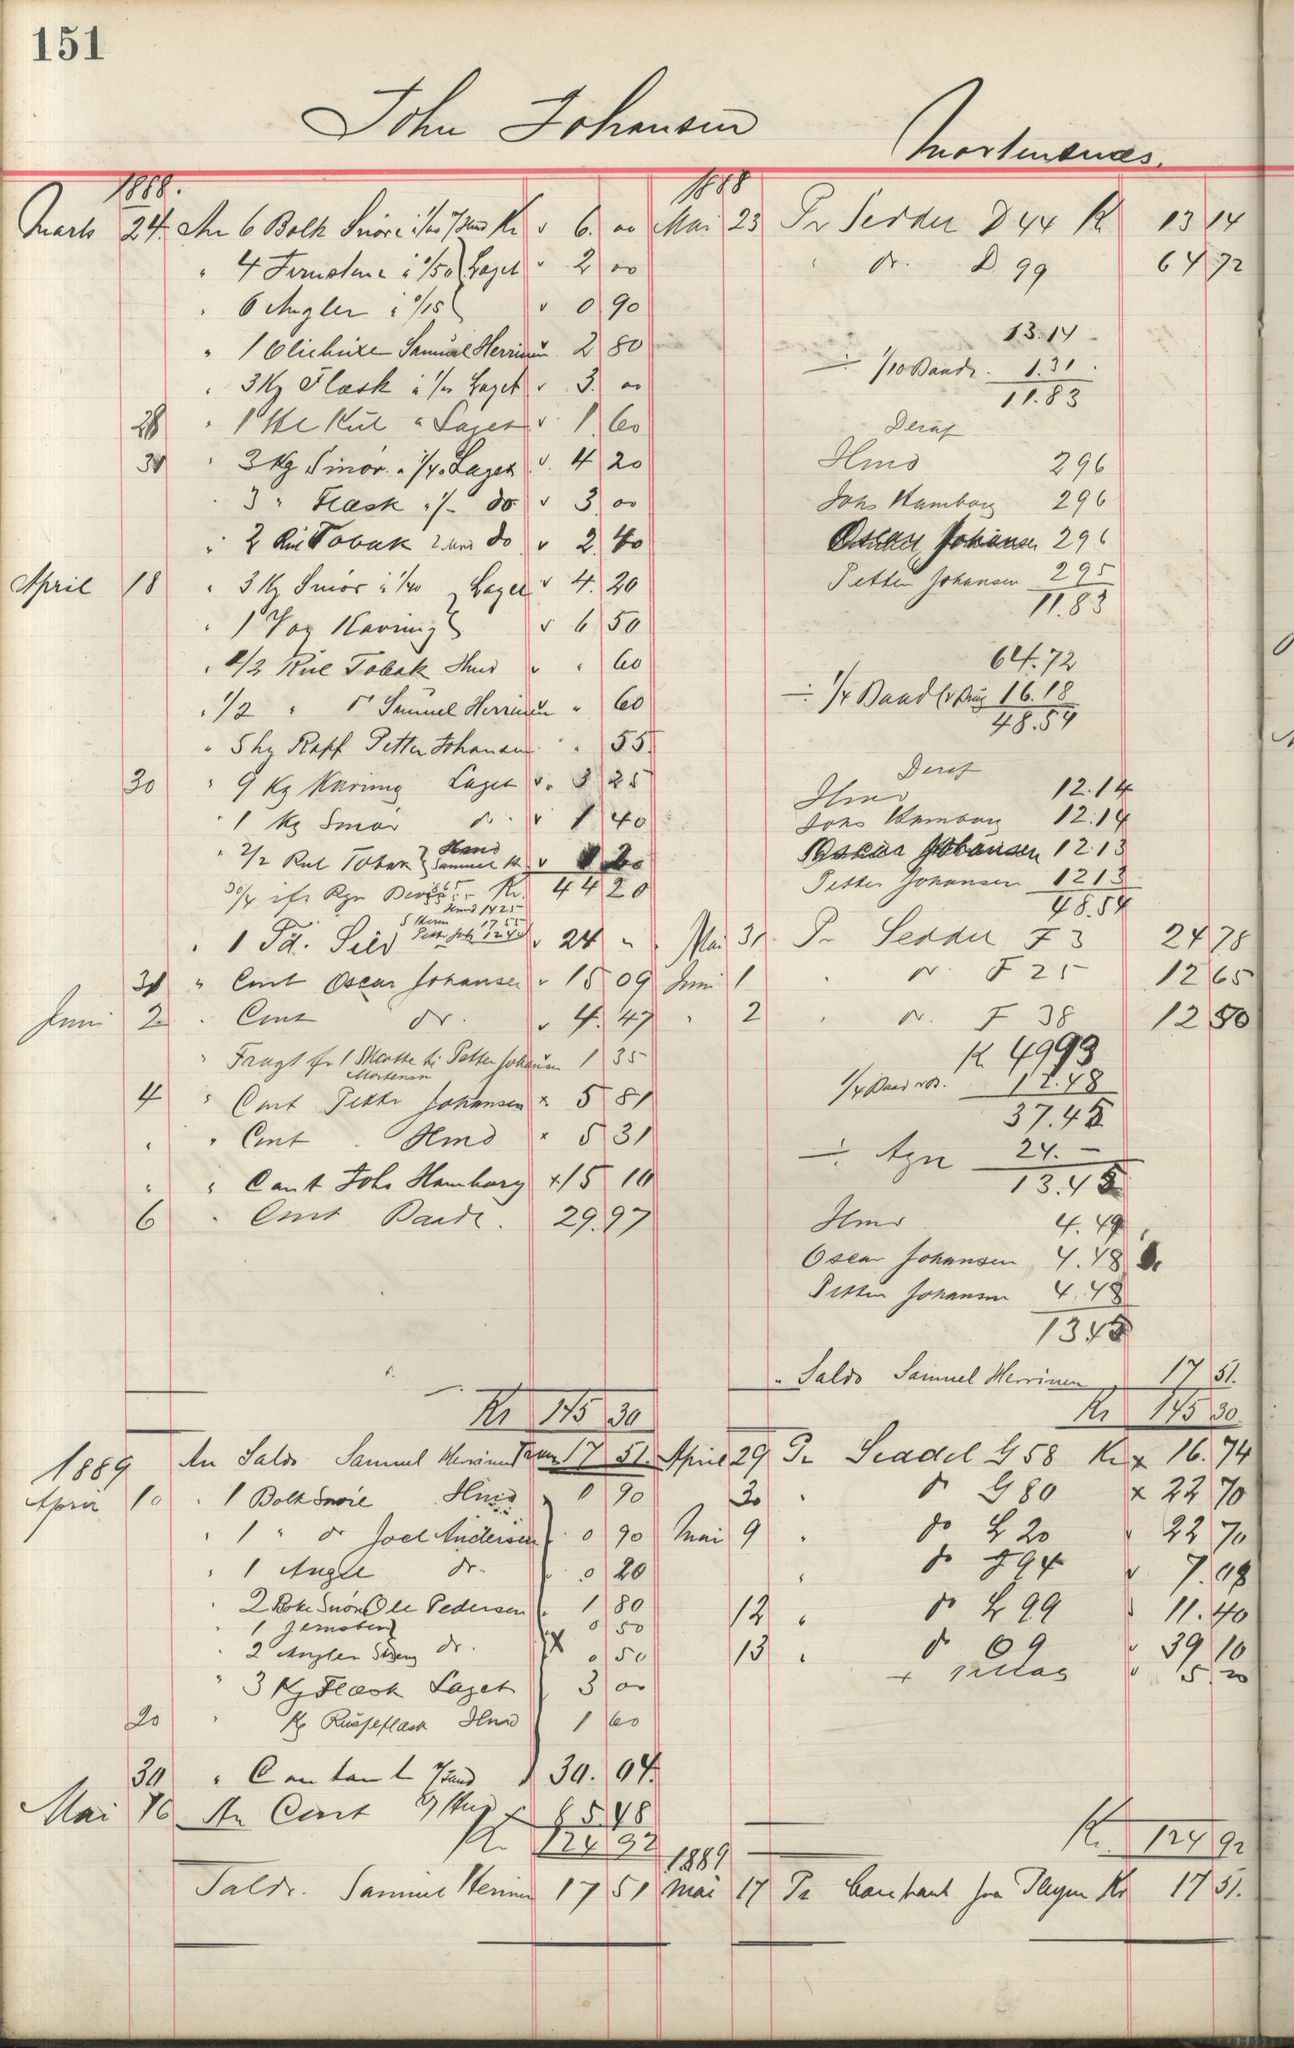 151
John Johansen
Mortensnæs.
1888.
Marts 24. An 6 Bolk Snöre Kr 6. 00
" 4 Jernstene à 0/50 Laget 2 00
" 6 Angler à 0/15 0 90
" 1 Oliebuxe Samuel Herrinen 2 80
" 3 Kg Flæsk Laget 3. 00
28 " 1 Kul Laget 1. 60
31 " 3 Kg Smör à 1/40 Laget 4 20
" 3 " Flæsk do 3. 00
" 2 Rul Tobak do 2. 40
April 18 " 3 Kg Smör à 1/40 Laget 4. 20
" 1 Vog Kavring 6 50
" 1/2 Rul Tobak Hmd " 60
" 1/2 " Samuel Herrinen " 60
" 5 hg Petter Johansen " 55
30 " 9 Kg Kavring Laget 3 25
" 1 Kg Smör do 1 40
" 2/2 Rul Tobak Hmd Samuel H
Kr. 44 20
Hmd 14 25
17 55
1240
" 1 Td. Sild 24 "
31 " Cont Oscar Johansen 15 09
Juni 2 " Cont do. 4. 47
" Fragt Petter Johansen 1 35
Mortensen
4 " Cont Petter Johansen 5 81
" " Cont Hmd 5 31
" " Cont Johs Hamborg 15 10
6 " Cont Baade. 29.97
Kr 145 30
1888
Mai 23 Pr Seddel D 44 K 13 14
" do. D 99 64 72
13.14
÷ 1/10 Baade 1.31
11.83
Deraf
Hmd 296
Johs Hamborg 296
Oscar Johansen 296
Petter Johansen 295
11.83
64.72
÷ 1/4 Baad 16.18
48.54
Deraf
Hmd 12.14
Johs Hamborg 12.14
Oscar Johansen 12.13
Petter Johansen 1213
48.54
Mai 31 Pr Seddel F 3 24 78
Juni 1 " do. F 25 12 65
" 2 " do. F 38 12 50
K 4993
1/4 Baad 12.48
37.45
÷ Agn 24.—
13.45
Hmd 4.49
Oscar Johansen 4.48
Petter Johansen 4.48
13.45
" Saldo Samuel Herrinen 17 51.
Kr 145 30
1889
An Saldo Samuel Herrinen 17 51.
April 10 " 1 Bolk Snöre Hmd 0 90
" 1 " do Joel Andersen 0 90
" 1 Angle do. 0 20
" 2 Bolk Snöre Ole Pedersen 1 80
" 1 Jernsten 0 50
" 2 Angler do. 0 50
" 3 Kg Flæsk Laget 3 00
20 " Kg Hmd 1 60
30 " Contant 30. 04.
Mai 16 An Cont 85.48
Kr. 124 92
Saldo. Samuel Herrinen 17 51
April 29 Pr Seddel G 58 Kr 16. 74
30 " do G 80 22 70
Mai 9 " do L 20 22 70
" do 94 7.08
12 " do L 99 11. 40
13 " do O 9 39 10
5. 20
Kr. 124 92
1889
Mai 17 Pr Contant fra Kr 17 51.